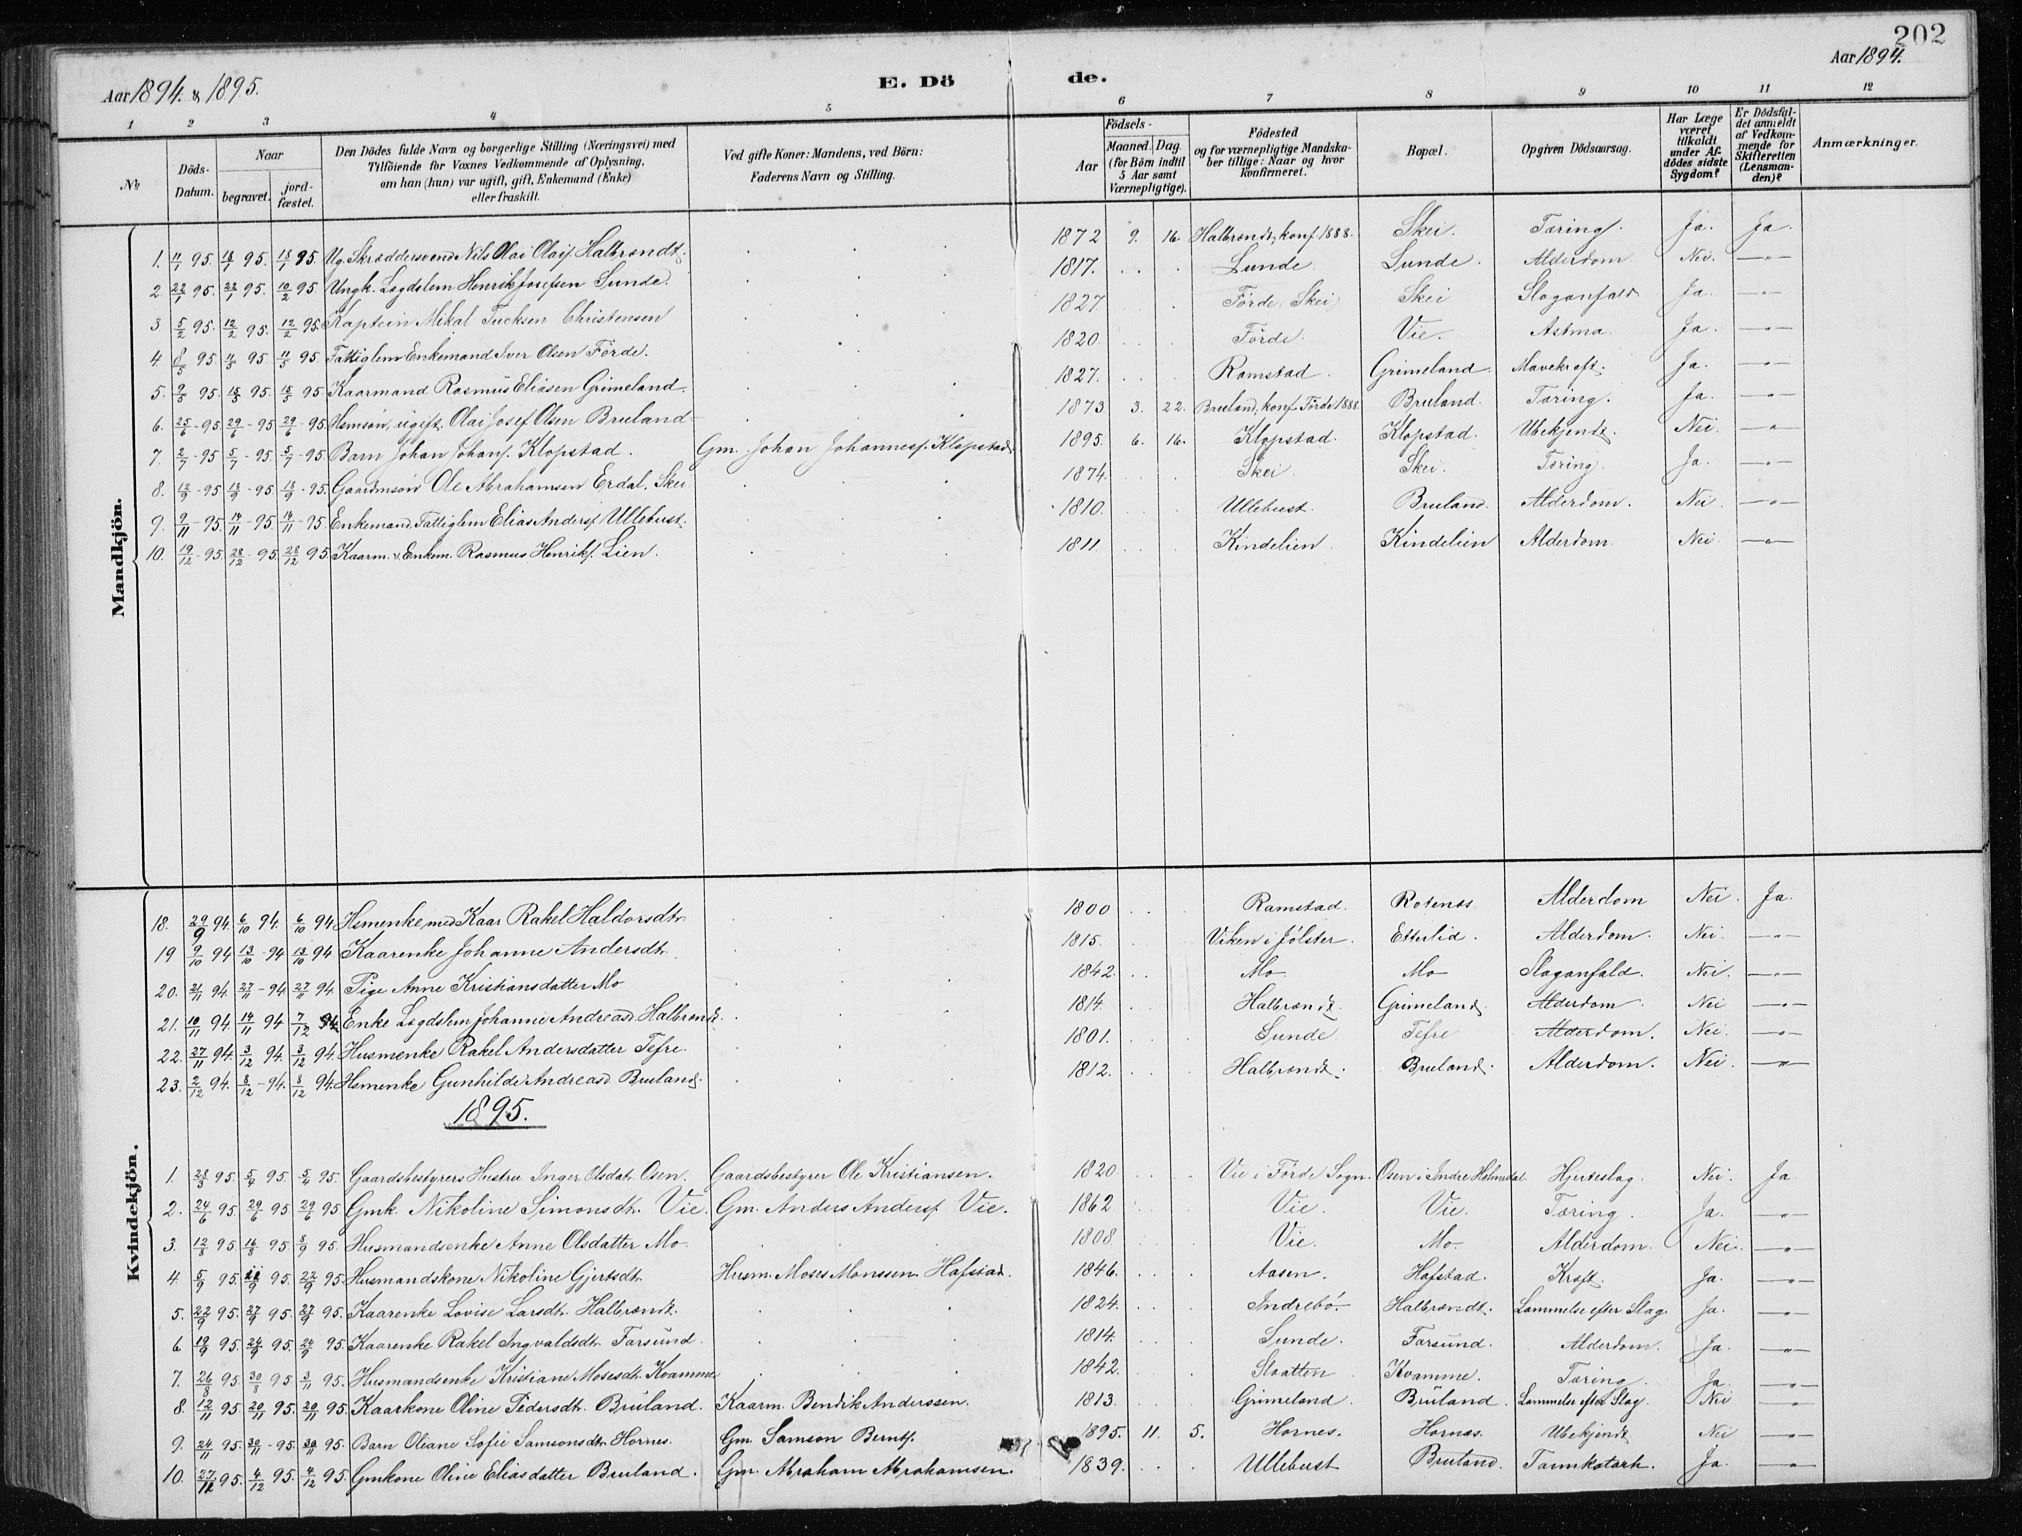 202
Aar 1894. & 1895. E. Dö de. Aar 1894.
1 2 3 4 5 6 7 8 9 10 11 12
No Döds-Datum. Naar begravet. jord-fæstet. Den Dödes fulde Navn og borgerlige Stilling (Næringsvei) med Tilföiende for Voxnes Vedkommende af Oplysning. om han (hun) var ugift, gift, Enkemand (Enke) eller fraskilt. Ved gifte Koner: Mandens, ved Börn: Faderens Navn og Stilling. Födsels- Aar Maaned. Dag. (for Börn indtil 5 Aar samt Værnepligtige). Födested og for værnepligtige Mandskaber tillige: Naar og hvor konfirmeret. Bopæl. Opgiven Dödsaarsag. Har Læge været tilkaldt under Afdödes sidste Sygdom? Er Dödsfaldet anmeldt af Vedkommende for Skifteretten (Lensmanden)? Anmærkninger.
Mandkjön.
1. 11/1 95. 18/1 95. 18/1 95. Ug. Skræddersvend Nils Olai Olaij. Halbrændt. 1872 9. 16. Halbrændt, konf. 1888. Skei. Tæring. Ja. Ja.
2 22/1 95. 22/1 95. 10/2 95. Ungk. Lægdslem Henrik Josefsen Sunde. 1817. Sunde Sunde. Alderdom Nei. —"—
3 5/2 95. 12/2 95. 12/2 95. Kaptein Mikal Tucksen Christensen 1827 Förde, Skei Skei Slaganfald Ja. —"—
4. 8/3 95. 11/3 95. 11/3 95. Fattiglem Enkemand Iver Olsen Förde. 1820 Förde. Vie. Astma. Ja. —"—
5. 9/3 95. 15/3 95. 15/3 95. Kaarmand Rasmus Eliasen Grimeland. 1827. Ramstad. Grimeland. Mavekræft. Ja. —"—
6. 25/6 - 95 29/6 - 95 29/6 - 95 Hsmsøn, ugift, Olai Josef Olsen Bruland 1873 3. 22. Bruland, konf. Förde 1888. Bruland. Tæring. Ja. —"—
7. 2/7 - 95 5/7 - 95. 5/7 - 95. Barn Johan Johans. Klopstad. Gm. Johan Johannesf. Klopstad. 1895. 6. 16. Klopstad. Klopstad. Ubekjendt. Nei. —"—
8. 12/9 - 95 18/9 - 95. 18/9 - 95. Gaardmsøn Ole Abrahamsen Erdal, Skei 1874. Skei. Skei. Tæring. Ja. —"—
9. 9/11 - 95. 14/11 - 95. 14/11 - 95. Enkemand, Fattiglem Elias Andersf. Ullebust. 1810. Ullebust. Bruland. Alderdom. Nei. —"—
10. 19/12 - 95 28/12 - 95. 28/12 95. Kaarm. & Enkem. Rasmus Henriks. Lien. 1811. Kindelien. Kindelien Alderdom. Nei. —"—
Kvindekjön.
18. 29/9 94. 6/10 94. 6/10 94 Hsmenke, med Kaar Rakel Haldorsdtr. 1800 Ramstad. Rotenes. Alderdom Nei. Ja.
19 9/10 94 13/10 - 94 13/10 94 Kaarenke Johanne Andersdtr. 1815. Viken i Jölster. Etterlid. Alderdom. Nei. —"—
20. 21/11 94. 27/11 - 94 27/11 94. Pige Anne Kristiansdatter Mo 1842. Mo. Mo Slaganfald. Nei. —"—
21. 10/11 94. 14/11 94 7/12 94. Enke Lægdslem Johanne Andreasd. Halbrændt. 1814. Halbrændt. Grimeland. Alderdom. Nei —"—
22. 27/11 94. 3/12 94. 3/12 94. Husmenke Rakel Andersdatter Tefre. 1801. Sunde Tefre Alderdom. Nei. —"—
23. 2/12 94. 8/12 - 94. 8/12 94. Hsmenke Gunhilde Andreasd. Bruland. 1812. Halbrændt. Bruland. Alderdom. Nei. —"—
1895.
1. 28/3 95. 5/4 95. 5/4 95. Gaardsbestyrers Hustru Inger Olsdat. Osen. Gaardsbestyrer Ole Kristiansen. 1820 Vie i Förde Sogn. Osen i Indre Holmedal. Hjerteslag. Nei. Ja
2. 24/6 95. 29/6 95 29/6 95 Gmk. Nikoline Simonsdtr. Vie. Gm. Anders Andersf. Vie. 1862 Vie. Vie. Tæring. Ja. —"—
3. 12/8 95 16/8 95 8/9 95. Husmandsenke Anne Olsdatter Mo. 1808 Vie. Mo. Alderdom. Nei. —"—
4. 5/9 95. 11/9 95. 22/9 95. Husmandskone Nikoline Gjertsdtr. Husm. Moses Monssen. Hafstad. 1846. Aasen. Hafstad. Kræft. Ja. —"—
5. 22/9 95. 27/9 95. 27/9 95. Kaarenke Lovise Larsdtr. Halbrændt. 1824. Indrebö. Halbrændt. Lammelse efter Slag. Ja. —"—
6 19/9 95. 24/9 95. 24/9 95. Kaarenke Rakel Ingvaldsdtr. Farsund. 1814. Sunde. Farsund. Alderdom. Ja. —"—
7. 26/8 95. 30/8 95 3/11 95. Husmandsenke Kristiane Mosesdtr. Kvamme 1842. Slaatten Kvamme. Tæring. Ja. —"—
8. 12/11 95. 20/11 95. 20/11 95. Kaarkone Oline Pedersdtr. Bruland. Kaarm. Bendik Anderssen. 1813. Grimeland. Bruland. Lammelse efter Slag. Nei —"—
9. 24/11 95. 30/11 - 95. 30/11 95. Barn Oliane Sofie Samsonsdtr. Hornes. Gm. Samson Berntf. 1895. 11. 5. Hornes. Hornes. Ubekjendt Nei —"—
10. 27/11 95. 4/12 95. 4/12 95. Gmkone Oline Eliasdatter Bruland. Gm. Abraham Abrahamsen. 1839. Ullebust Bruland. Tarmkatarh. Ja. —"—